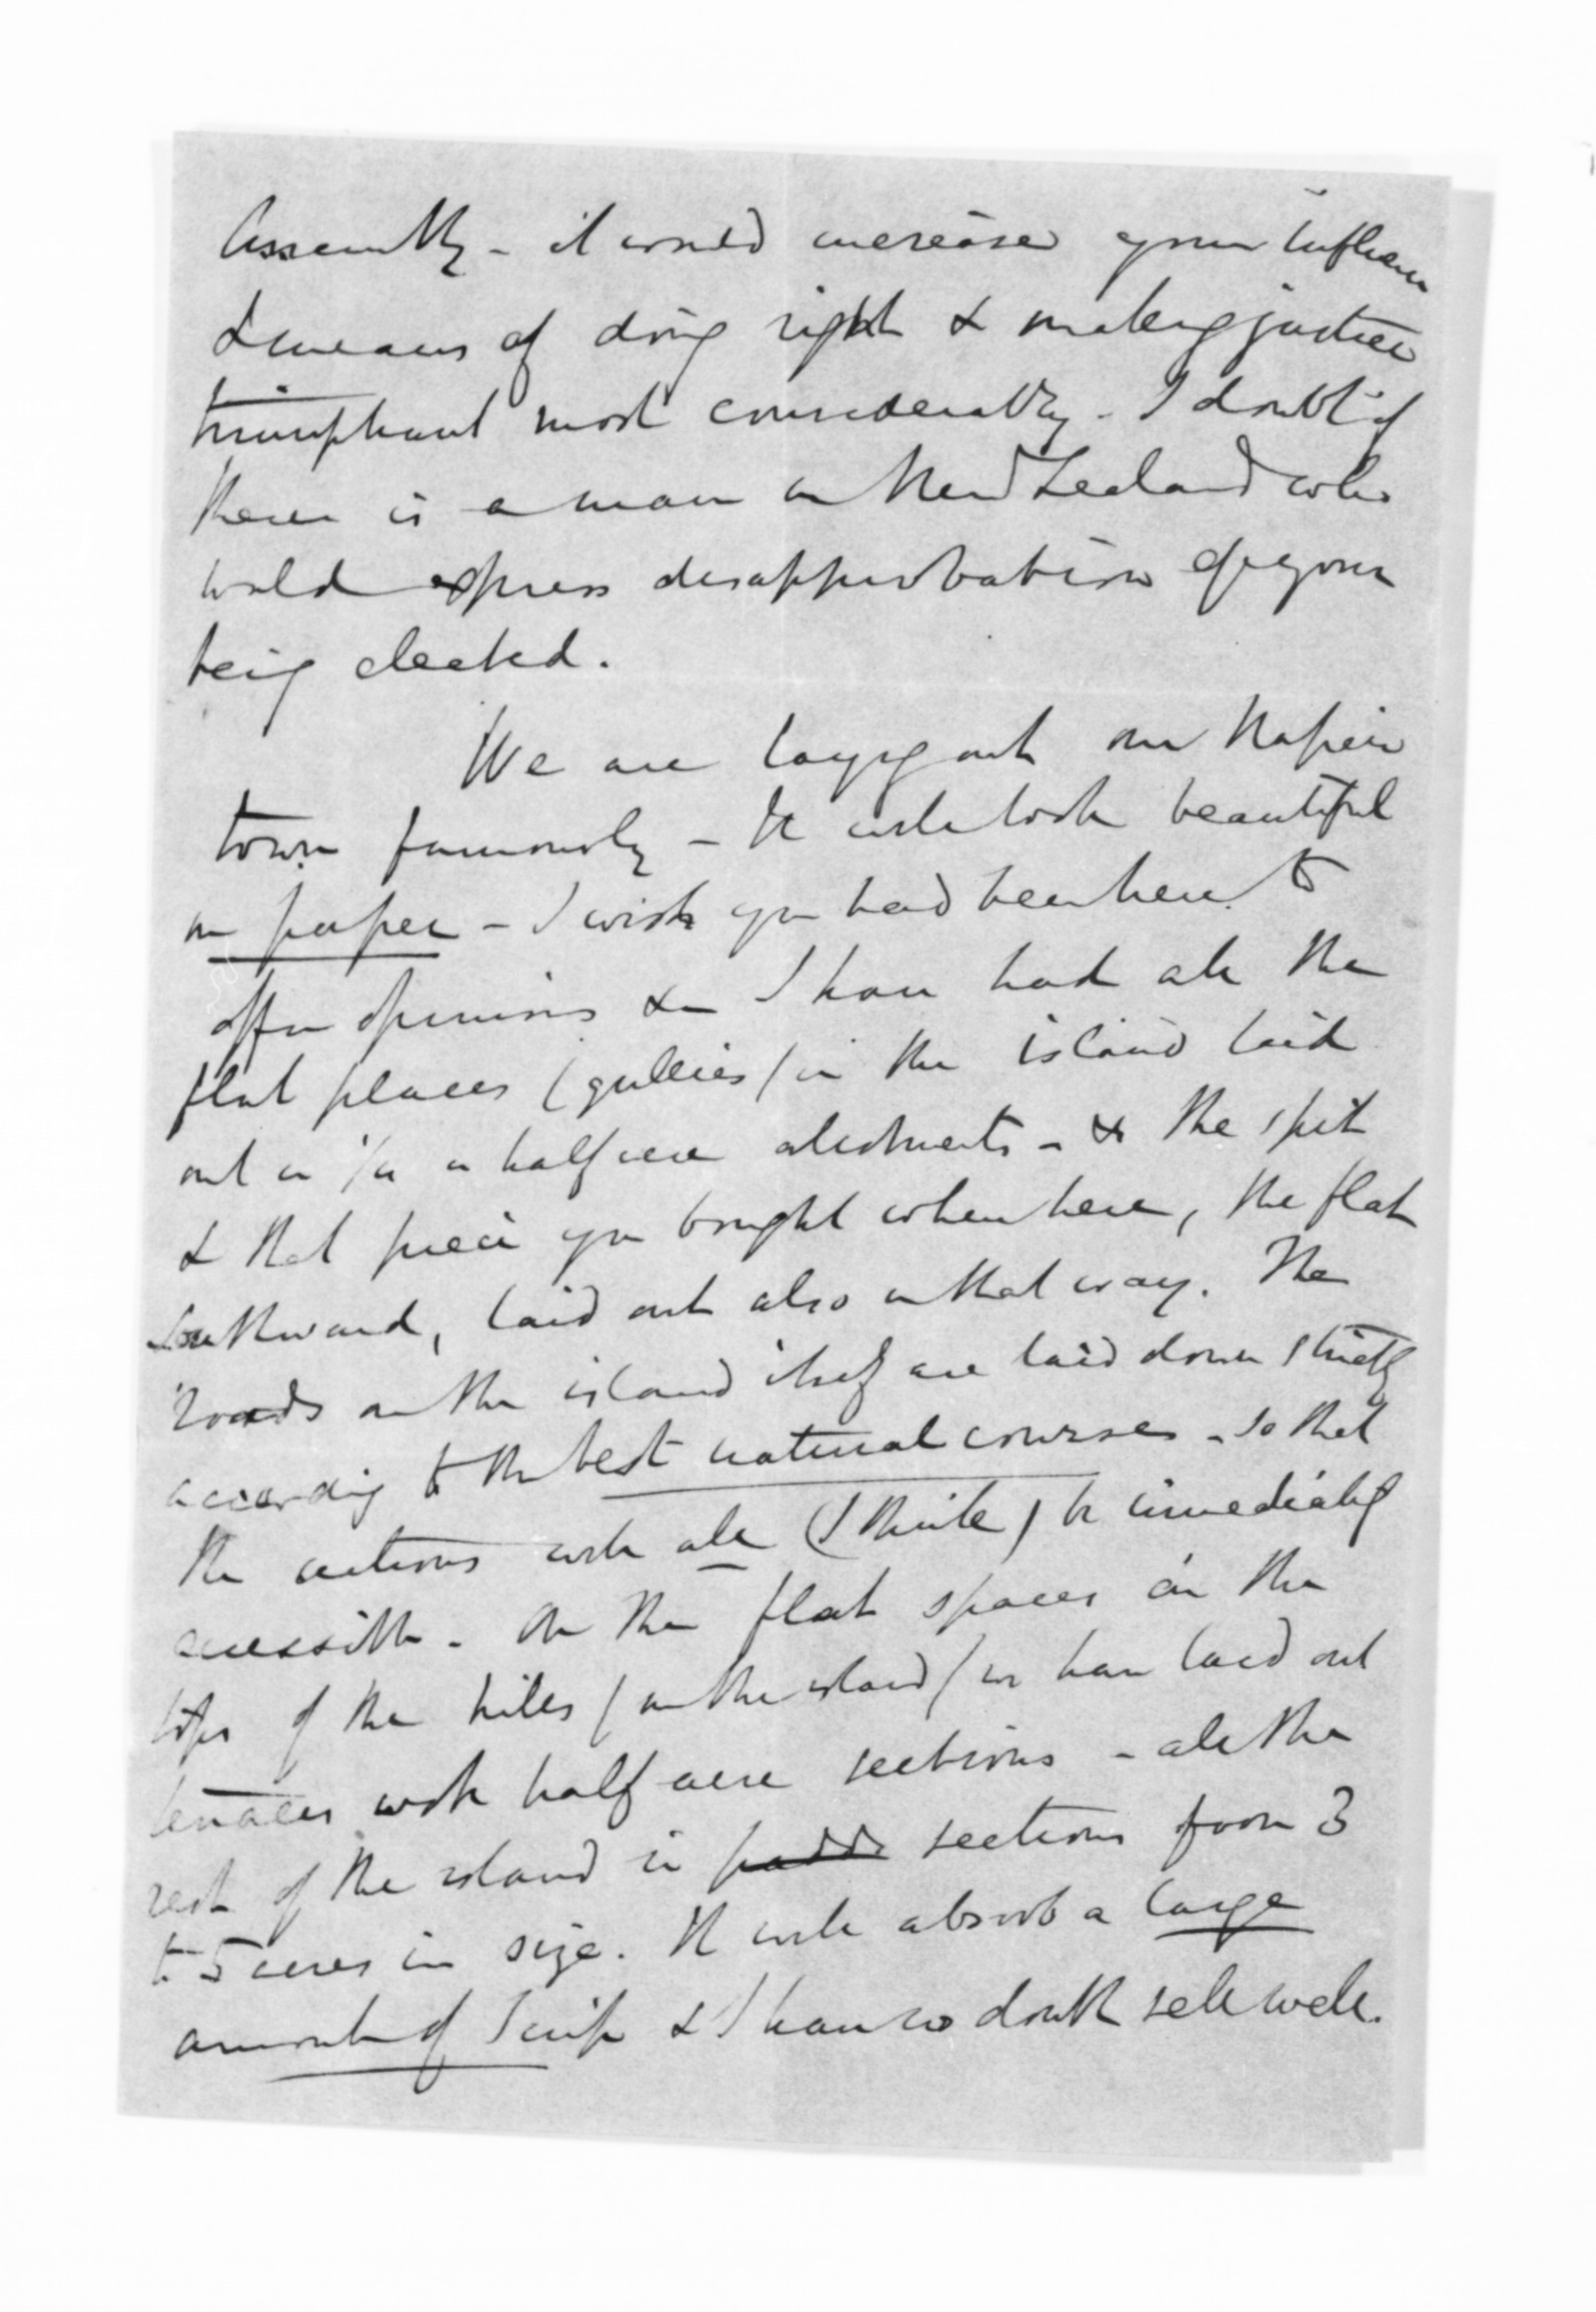 Assembly - it would increase your influence
& means of doing right & making justice
triumphant most considerably - I doubt if
there is a man in New Zealand who
would express disapprobation of your
being elected.
We are laying out our Napier
town famously - It will look beautiful
on paper - I wish you had been here to
offer opinions &c I have had all the
flat places (gullies) in the island laid
out in 1/4 a half acre allotments - & the spit
& that piece you bought when here, the flat
Southward, laid out also in that way. The
roads on the island itself are laid down strictly
according to the best natural courses - so that
the sections will all (I think) be immediately
accessible. On the flat spaces on the
tops of the hills (on the island) we have laid out
terraces with half acre sections - all the
rest of the island in padds sections from 3
to 5 acres in size. It will absorb a large
amount of Scrip & I have no doubt sell well.